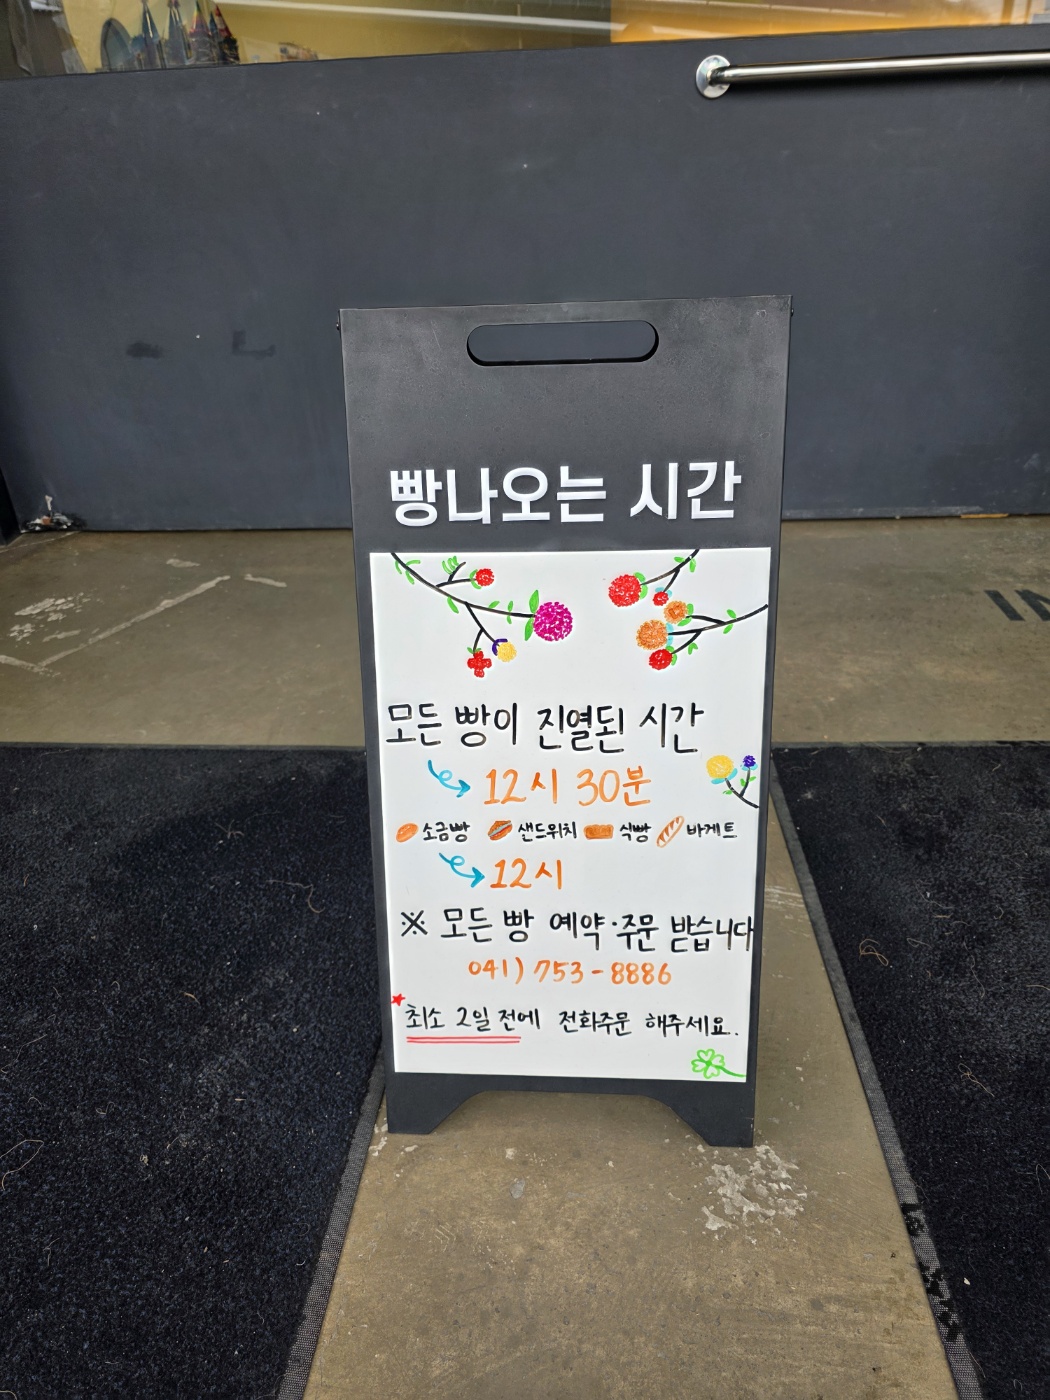 빵나오는 시간
모든 빵이 진열된 시간
12시 30분
소금빵 샌드위치 식빵 바게트
12시
※ 모든 빵 예약·주문 받습니다
041) 753-8886
최소 2일 전에 전화주문 해주세요.